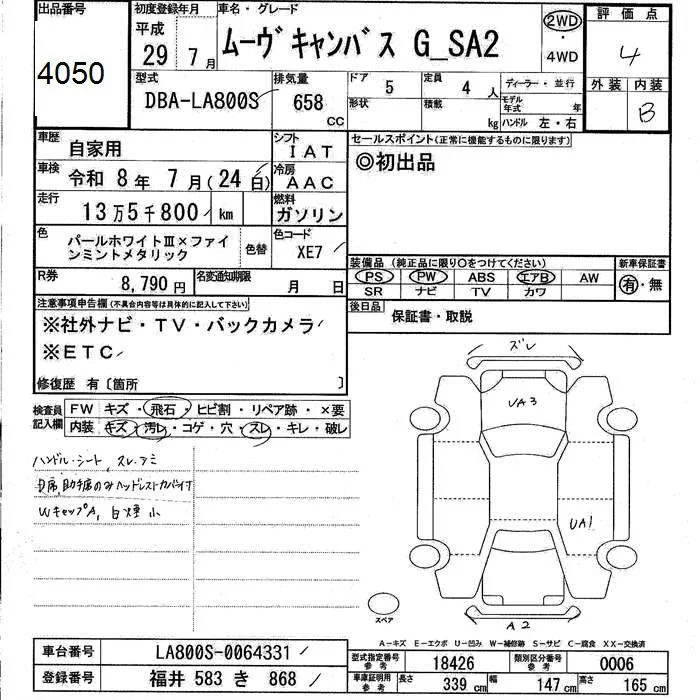 出品番号
4050
初度登録年月
平成
29年 7月
車名・グレード
ムーヴキャンバス G_SA2
2WD
・
4WD
評価点
4
外装 内装
B
型式
DBA-LA800S
排気量
658
CC
ドア
5
形状
定員
4 人
積載
kg
ディーラー・並行
モデル年式 年
ハンドル 左・右
車歴
自家用
シフト
IAT
車検
令和 8年 7月(24日)
冷房
AAC
走行
13万5千800 km
燃料
ガソリン
色
パールホワイトⅢ×ファイ
ンミントメタリック
色替
色コード
XE7
R券
8,790円
名変通知期限
月 日
セールスポイント(正常に機能するものに限ります)
◎初出品
装備品 (純正品に限り○をつけてください)
PS PW ABS エアB AW
SR ナビ TV カワ
新車保証書
有・無
後日品
保証書・取説
注意事項申告欄(不具合内容等は具体的に記入して下さい)
※社外ナビ・TV・バックカメラ
※ETC
修復歴 有〔箇所 〕
検査員
記入欄
FW キズ・飛石・ヒビ割・リペア跡・×要
内装 キズ・汚レ・コゲ・穴・スレ・キレ・破レ
ハンドル・シート、スレ・シミ
助手席のみヘッドレストカバー付
WキャップA、白煙小
ズレ
UA3
UA1
A2
スペア
A-キズ E-エクボ U-凹み W-補修跡 S-サビ C-腐食 XX-交換済
車台番号
LA800S-0064331
登録番号
福井 583 き 868
型式指定番号
参考
18426
類別区分番号
参考
0006
車庫証明用
参考
長さ
339 cm
幅
147 cm
高さ
165 cm